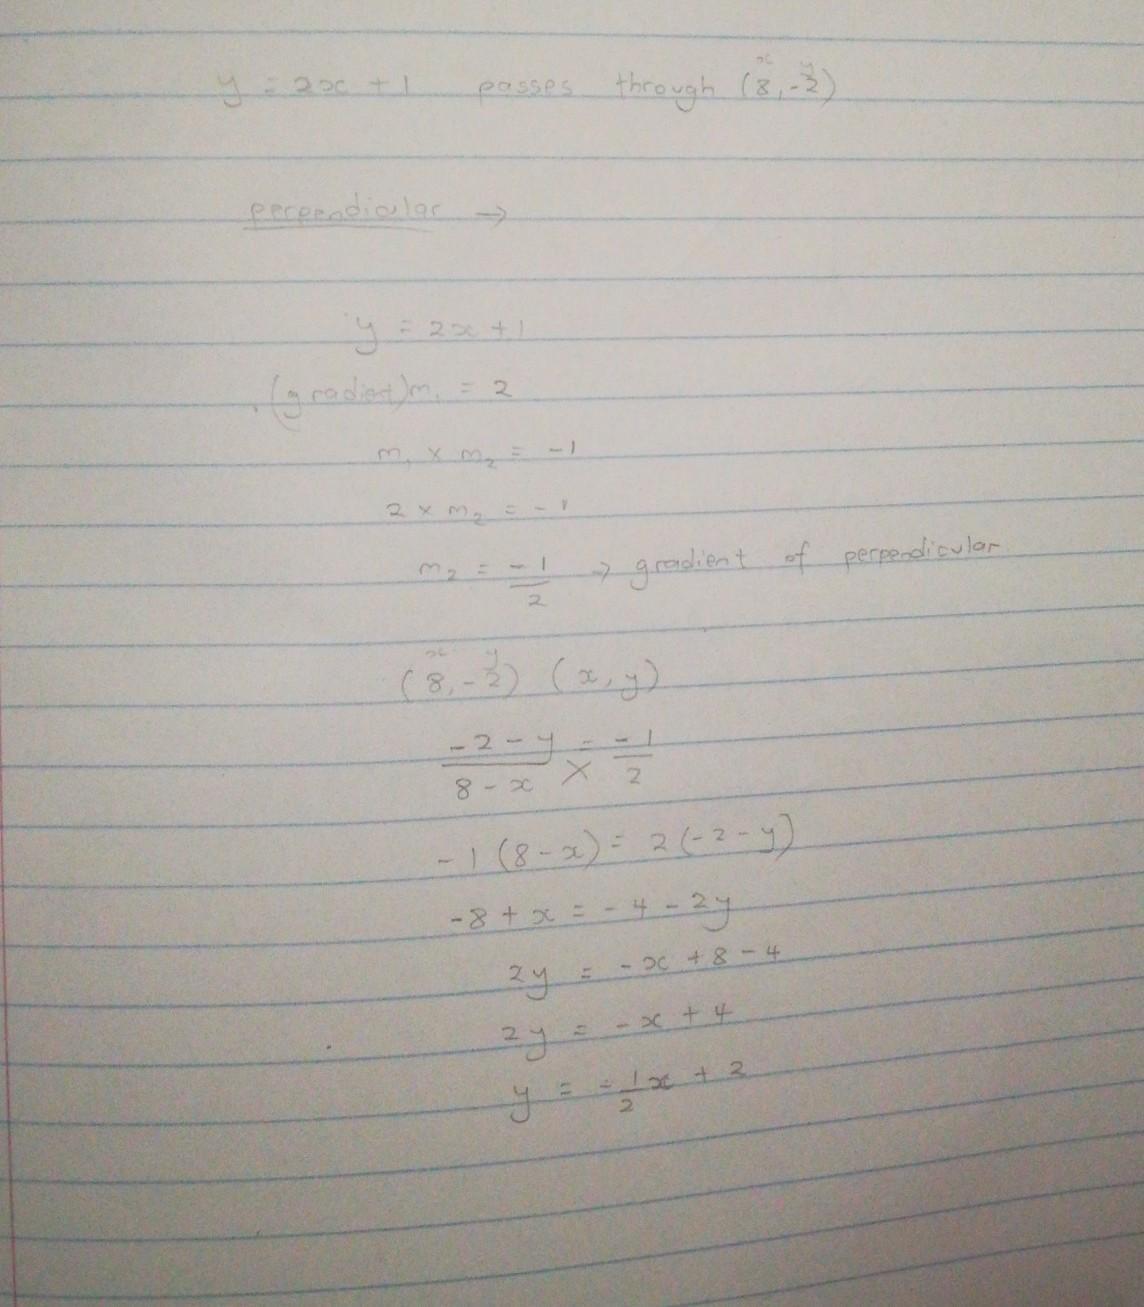 y = 2x + 1 passes through (8, -2)
x y
perpendicular →
y = 2x + 1
(gradient) m₁ = 2
m₁ × m₂ = -1
2 × m₂ = -1
m₂ = -1/2 → gradient of perpendicular
x y
(8, -2) (x, y)
-2 - y / 8 - x = -1/2
-1(8 - x) = 2(-2 - y)
-8 + x = -4 - 2y
2y = -x + 8 - 4
2y = -x + 4
y = -1/2 x + 2